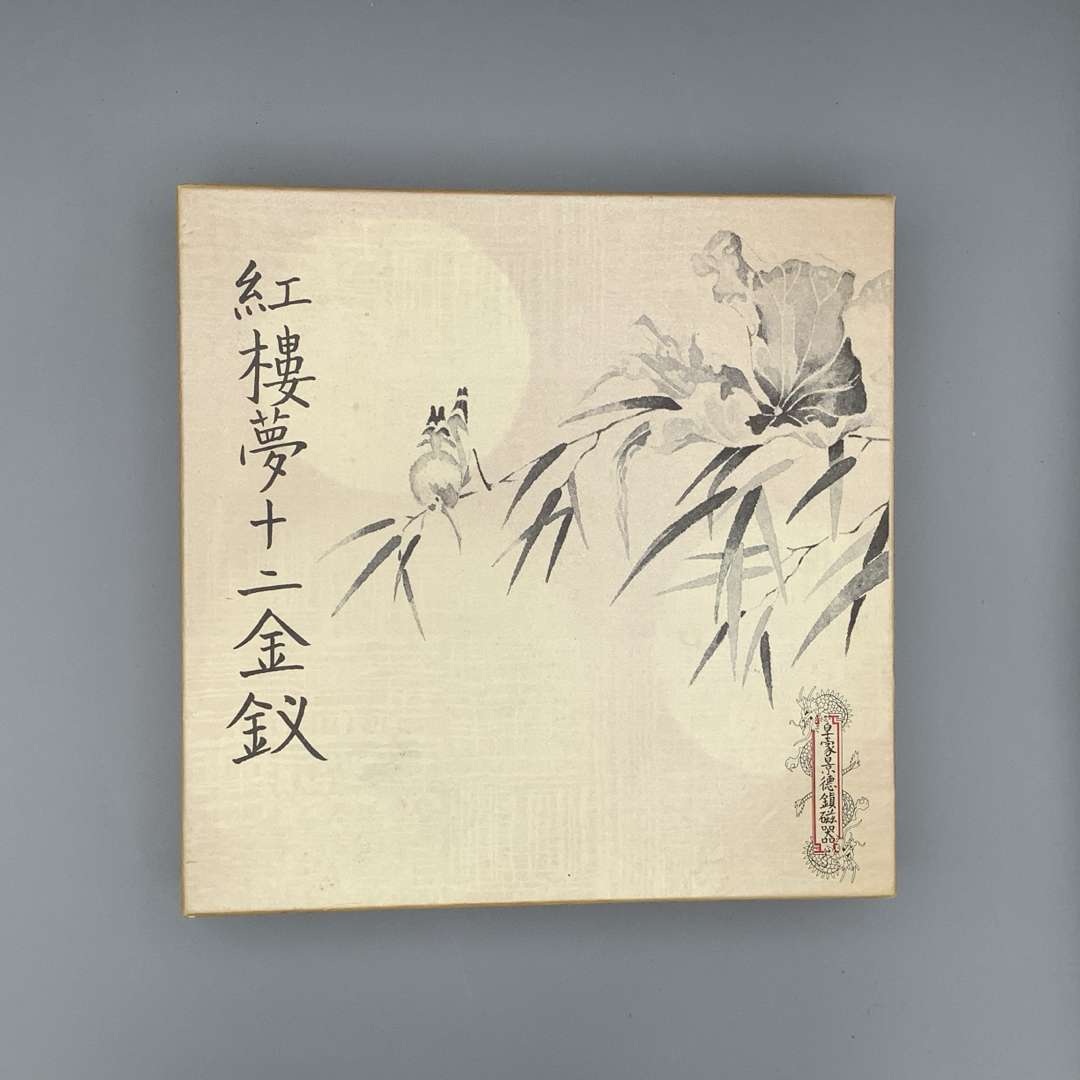 紅樓夢十二金釵
皇豪景德鎮磁器